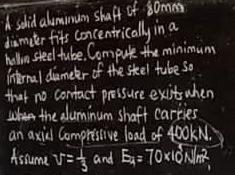 A solid aluminum shaft of 80mm
diameter fits concentrically in a
hollow steel tube. Compute the minimum
internal diameter of the steel tube so
that no contact pressure exists when
the aluminum shaft carries
an axial compressive load of 400kN.
Assume ν=1/3 and